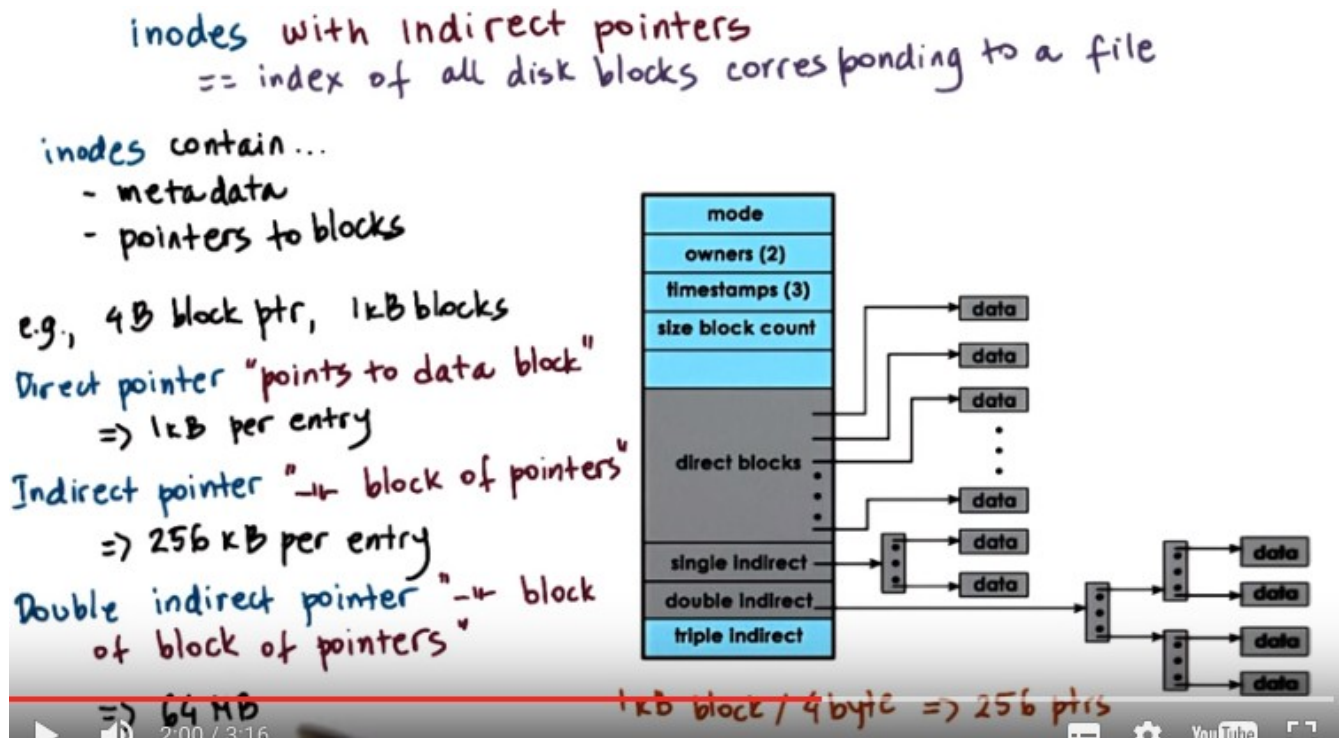 inodes with indirect pointers
== index of all disk blocks corresponding to a file
inodes contain...
- metadata
- pointers to blocks
e.g., 4B block ptr, 1kB blocks
Direct pointer "points to data block"
=> 1kB per entry
Indirect pointer "-"- block of pointers"
=> 256 kB per entry
Double indirect pointer "-"- block
of block of pointers"
=> 64 MB
mode
owners (2)
timestamps (3)
size block count
direct blocks
single indirect
double indirect
triple indirect
data
data
data
data
data
data
data
data
data
data
1kB block / 4 byte => 256 ptrs
2:00 / 3:16
YouTube